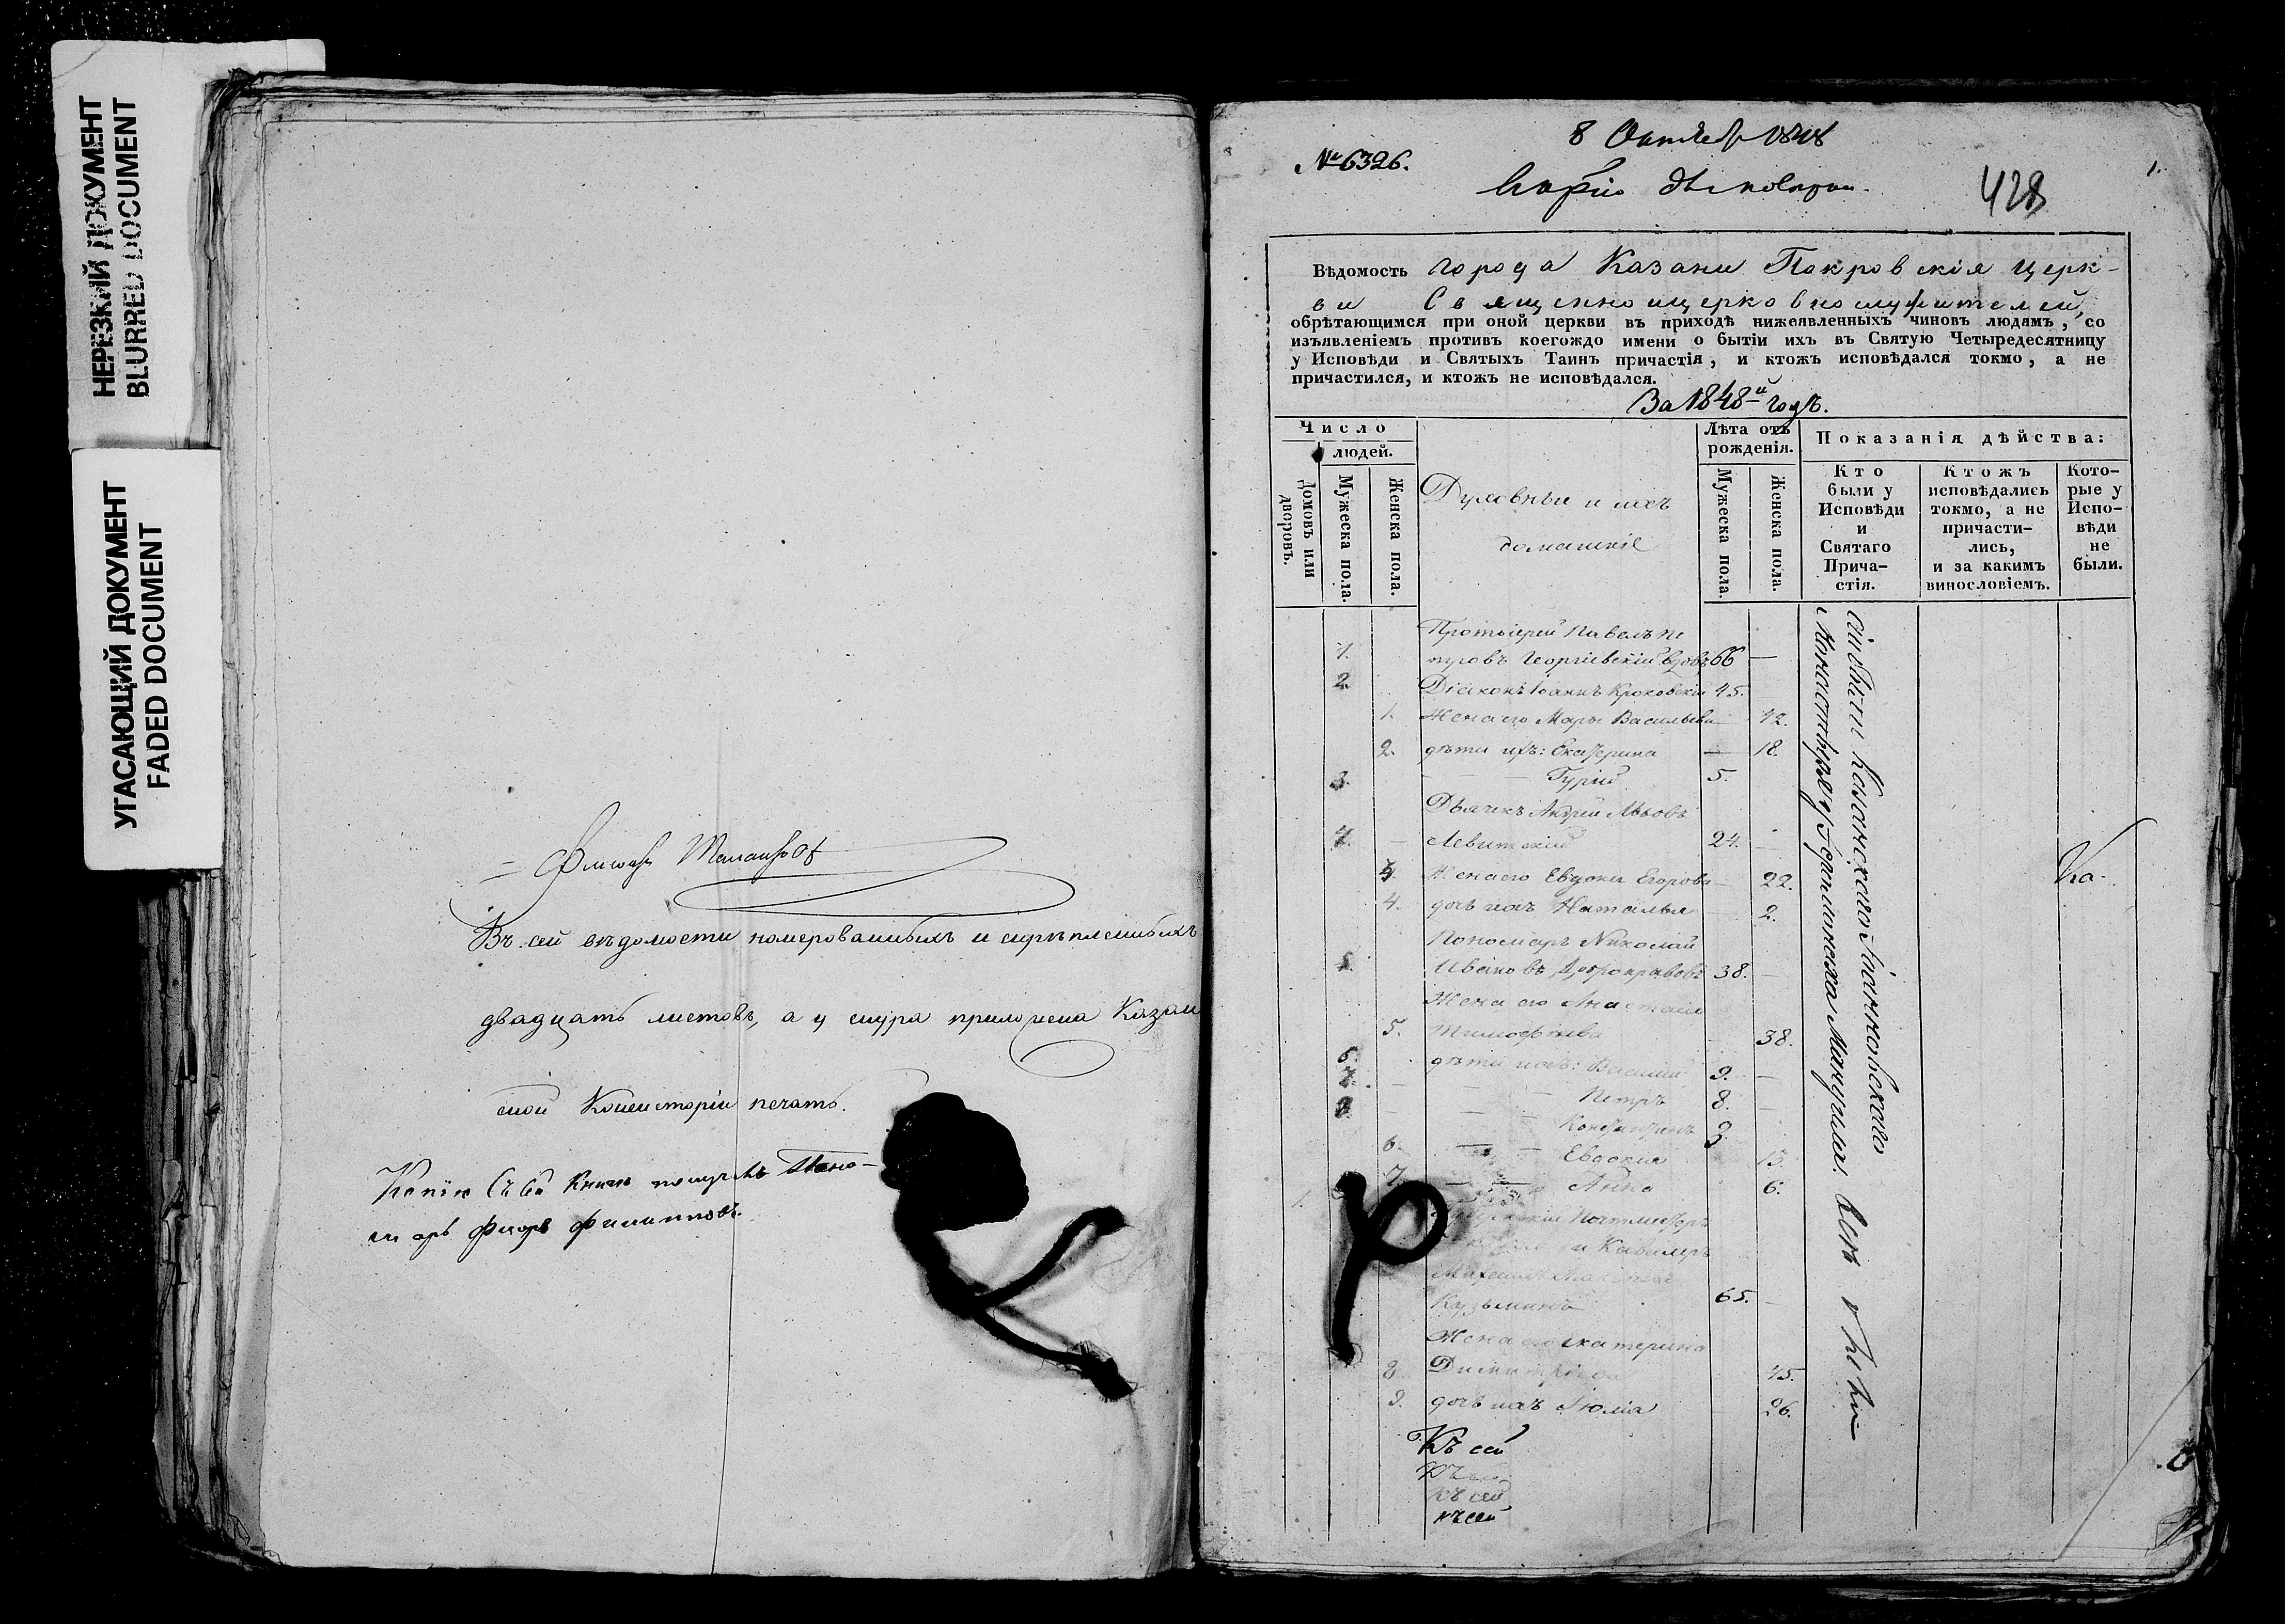 НЕРЕЗКИЙ ДОКУМЕНТ
BLURRED DOCUMENT
УГАСАЮЩИЙ ДОКУМЕНТ
FADED DOCUMENT
Въ сей вѣдомости номерованныхъ и скрѣпленныхъ
двадцать листовъ, а у снура приложена Казан
ской Консисторіи печать.
Копію съ сей книги получилъ Поно-
марь Филипповъ.
8 Октября 1848
№ 6326.
428
1.
Вѣдомость города Казани Покровскія церк-
ви Священноицерковнослужителей,
обрѣтающимся при оной церкви въ приходѣ нижеявленныхъ чиновъ людямъ, со
изъявленіемъ противъ коегождо имени о бытіи ихъ въ Святую Четыредесятницу
у Исповѣди и Святыхъ Таинъ причастія, и ктожъ исповѣдался токмо, а не
причастился, и ктожъ не исповѣдался.
За 1848й годъ.
Число
людей.
Домовъ или дворовъ.
Мужеска пола.
Женска пола.
Духовные и ихъ
домашніе
Лѣта отъ рожденія.
Мужеска пола.
Женска пола.
Показанія дѣйства:
Кто были у Исповѣди и Святаго Прича- стія.
Ктожъ исповѣдались токмо, а не причасти- лись, и за какимъ винословіемъ.
Кото- рые у Испо- вѣди не были.
Протоіерей Павелъ Пе
1. тровъ Георгіевскій вдовъ 66 —
2. Діаконъ Іоаннъ Кроковскій 45.
1. Жена его Марья Васильева — 42.
2. дѣти ихъ: Екатерина — 18.
3. — — Гурій 5.
Дьячекъ Андрей Львовъ
4. Левитскій 24. —
3. Жена его Евдокія Егорова — 22.
4. дочь ихъ Наталья — 2.
Пономарь Николай
5. Ивановъ Добронравовъ 38. —
Жена его Анастасія
5. Тимофѣева 38.
6. дѣти ихъ: Василій 9. —
7. — — Петръ 8. —
8. — — Константинъ 3.
6. — — Евдокія 13.
7. — — Анна 6.
1. Почтмейстеръ
и Кавалеръ
Кузьминъ 65. —
Жена его Екатерина
8. Димитріева 45.
9. дочь ихъ Юлія 26.
Къ сей
Къ сей
Къ сей
Къ сей